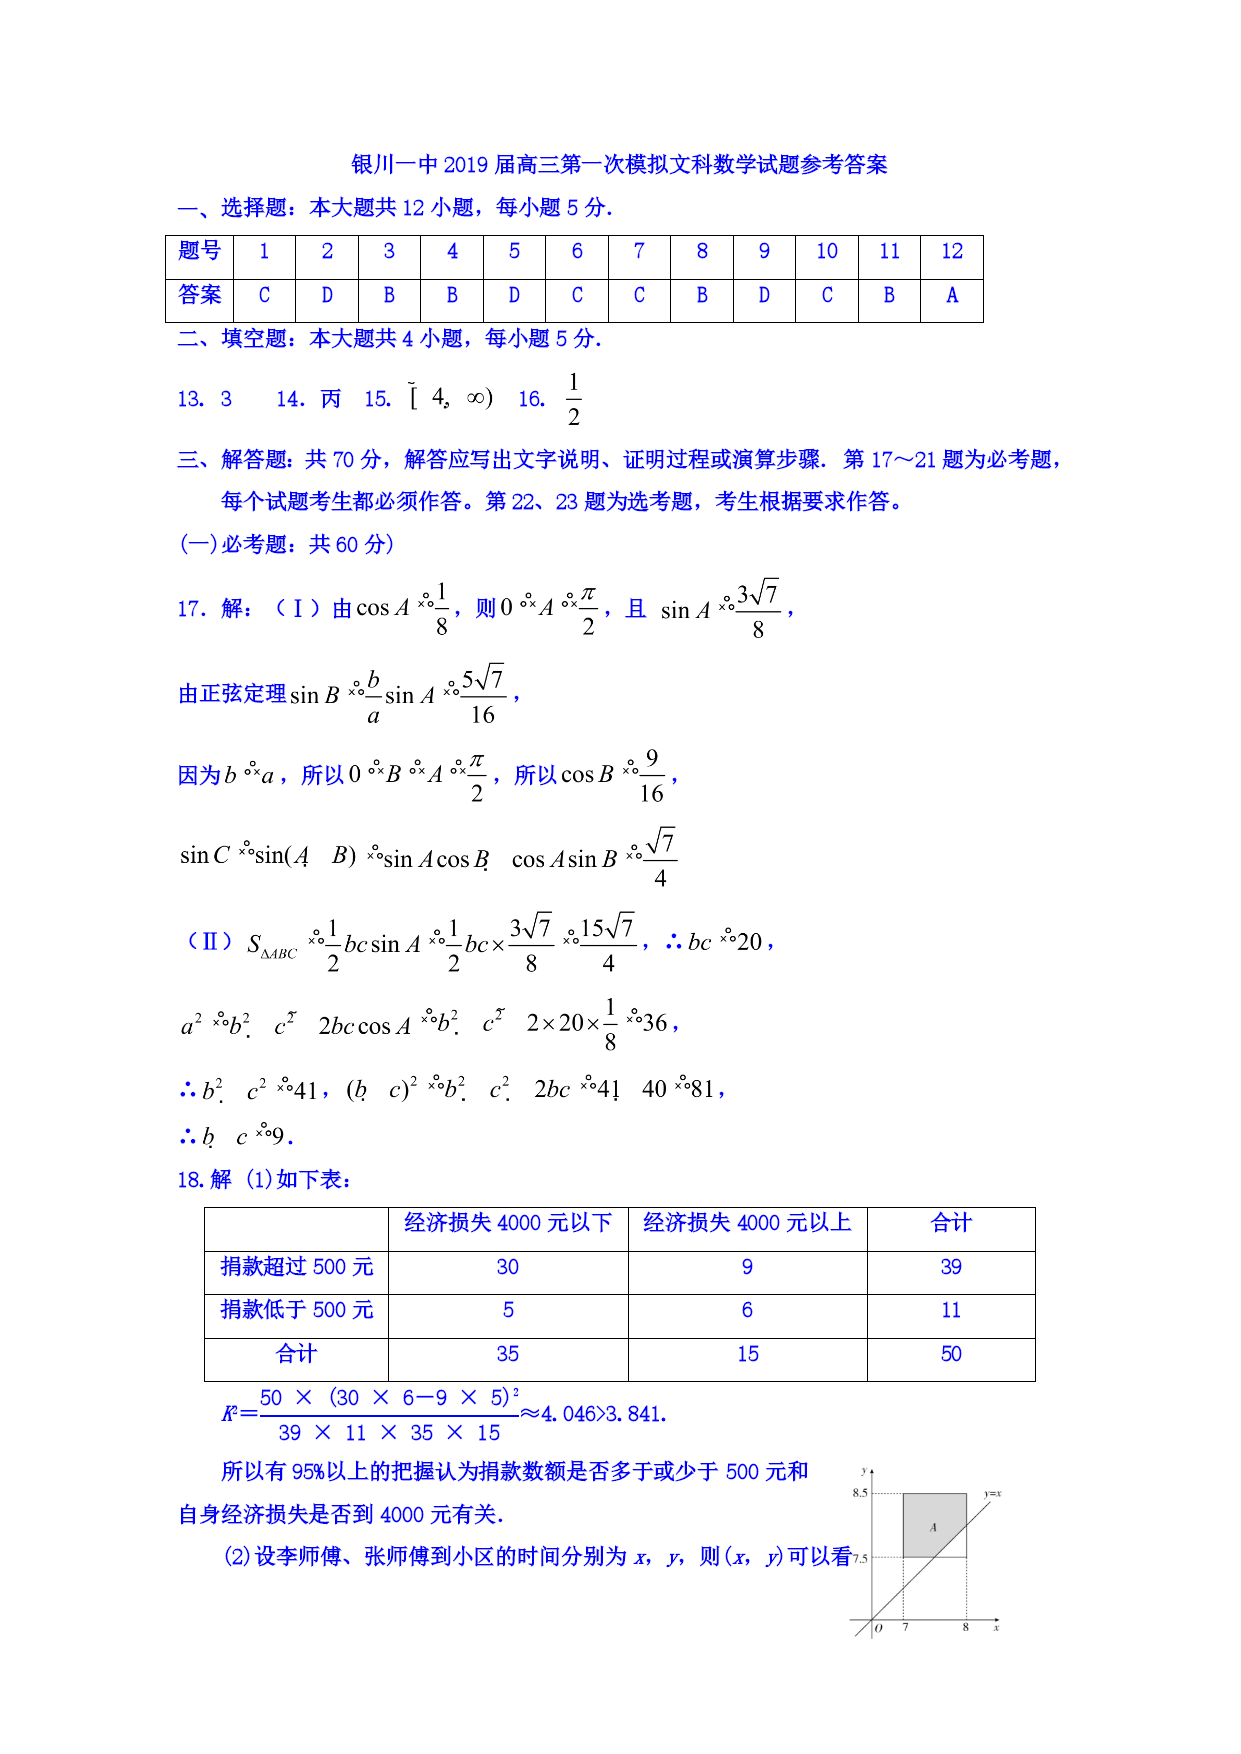 银川一中 2019 届高三第一次模拟文科数学试题参考答案
一、选择题：本大题共 12 小题，每小题 5 分．
题号 1 2 3 4 5 6 7 8 9 10 11 12
答案 C D B B D C C B D C B A
二、填空题：本大题共 4 小题，每小题 5 分．
13. 3 14. 丙 15. [ 4, ∞) 16. 1/2
三、解答题：共 70 分，解答应写出文字说明、证明过程或演算步骤．第 17～21 题为必考题，
每个试题考生都必须作答。第 22、23 题为选考题，考生根据要求作答。
(一)必考题：共 60 分)
17．解：（Ⅰ）由 cos A 1/8，则 0 A π/2，且 sin A 3√7/8，
由正弦定理 sin B b/a sin A 5√7/16，
因为 b a，所以 0 B A π/2，所以 cos B 9/16，
sin C sin(A B) sin A cos B cos A sin B √7/4
（Ⅱ）S△ABC 1/2 bc sin A 1/2 bc × 3√7/8 15√7/4，∴ bc 20，
a² b² c² 2bc cos A b² c² 2×20×1/8 36，
∴ b² c² 41，(b c)² b² c² 2bc 41 40 81，
∴ b c 9．
18.解 (1)如下表：
经济损失 4000 元以下 经济损失 4000 元以上 合计
捐款超过 500 元 30 9 39
捐款低于 500 元 5 6 11
合计 35 15 50
K²＝50 × (30 × 6－9 × 5)²/39 × 11 × 35 × 15≈4.046>3.841.
所以有 95%以上的把握认为捐款数额是否多于或少于 500 元和
自身经济损失是否到 4000 元有关．
(2)设李师傅、张师傅到小区的时间分别为 x，y，则(x，y)可以看
y
8.5
y=x
A
7.5
O 7 8 x